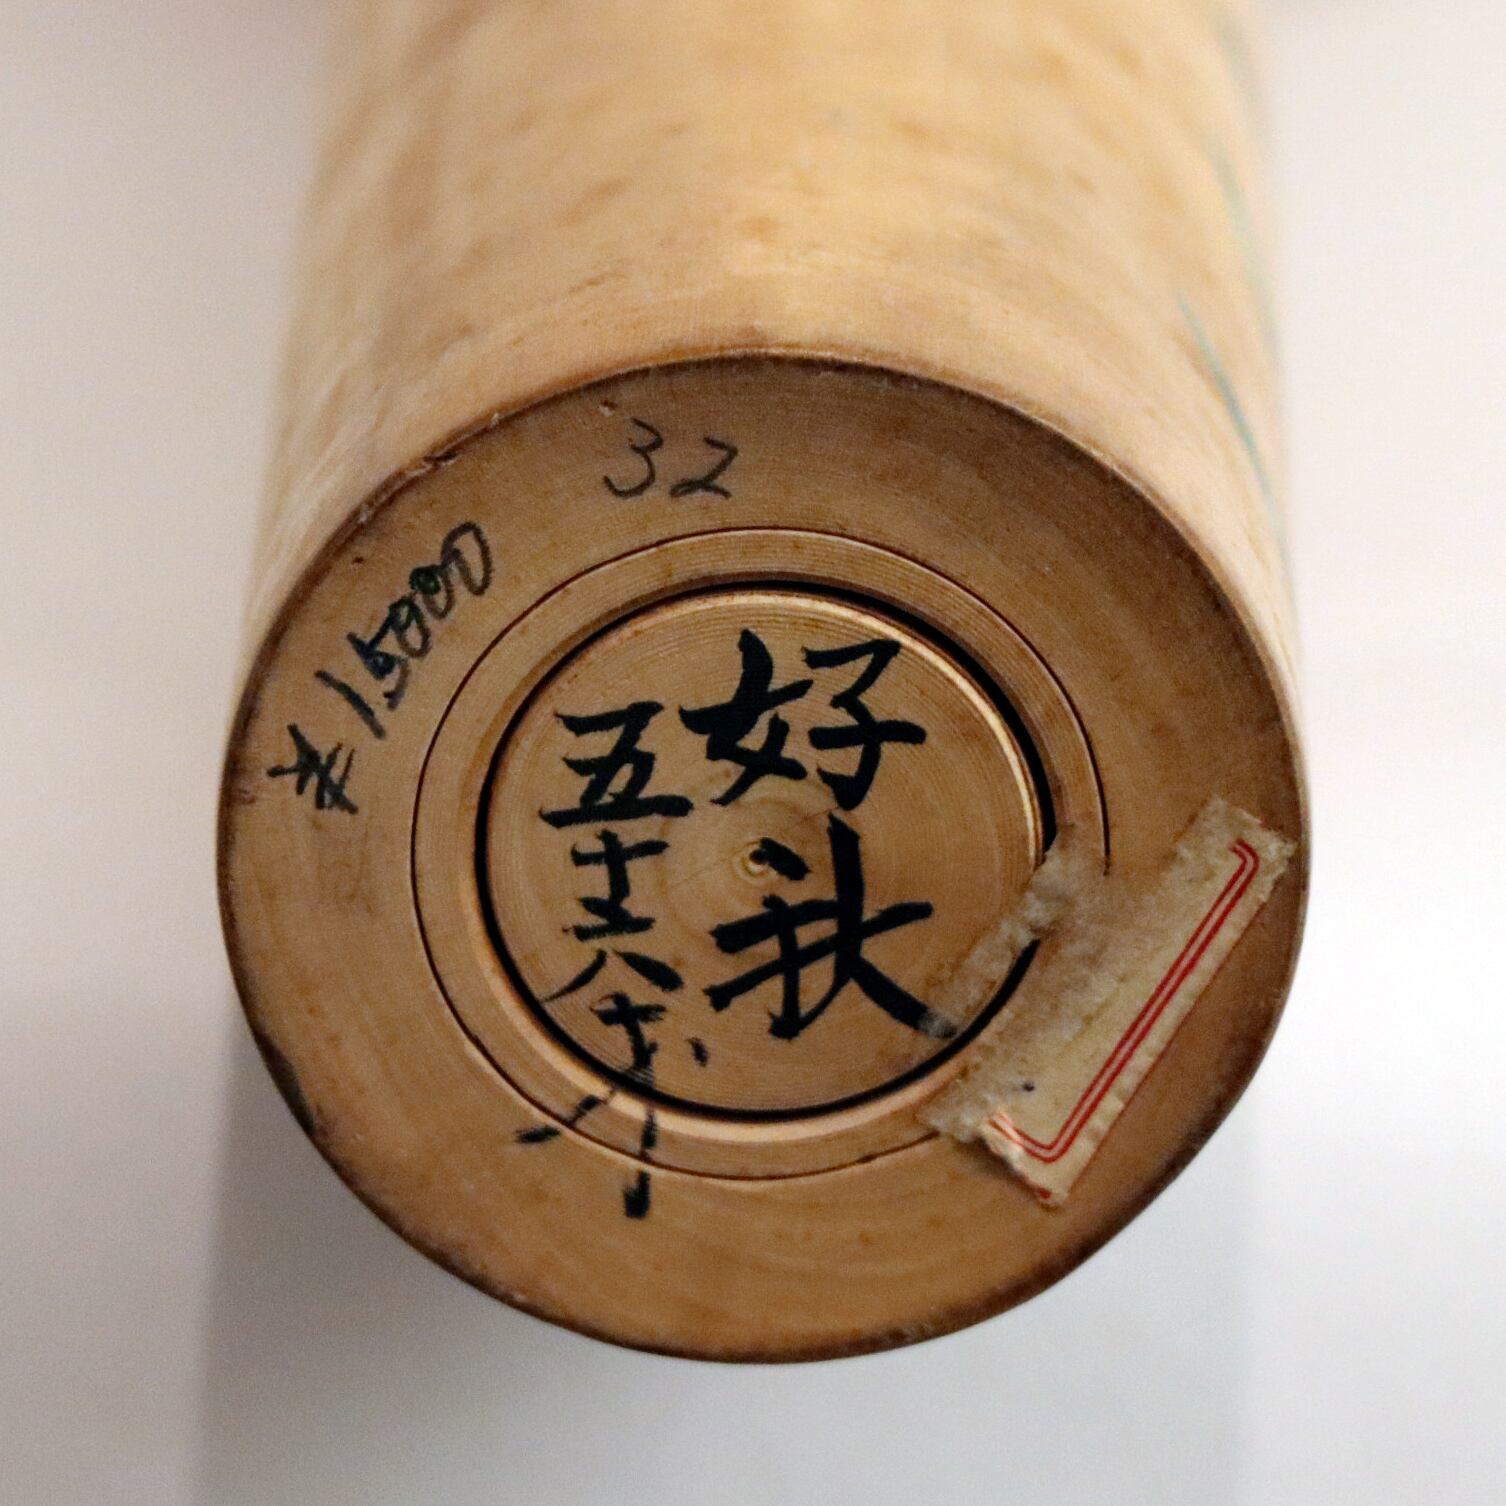 32
¥15000
好秋
五十六